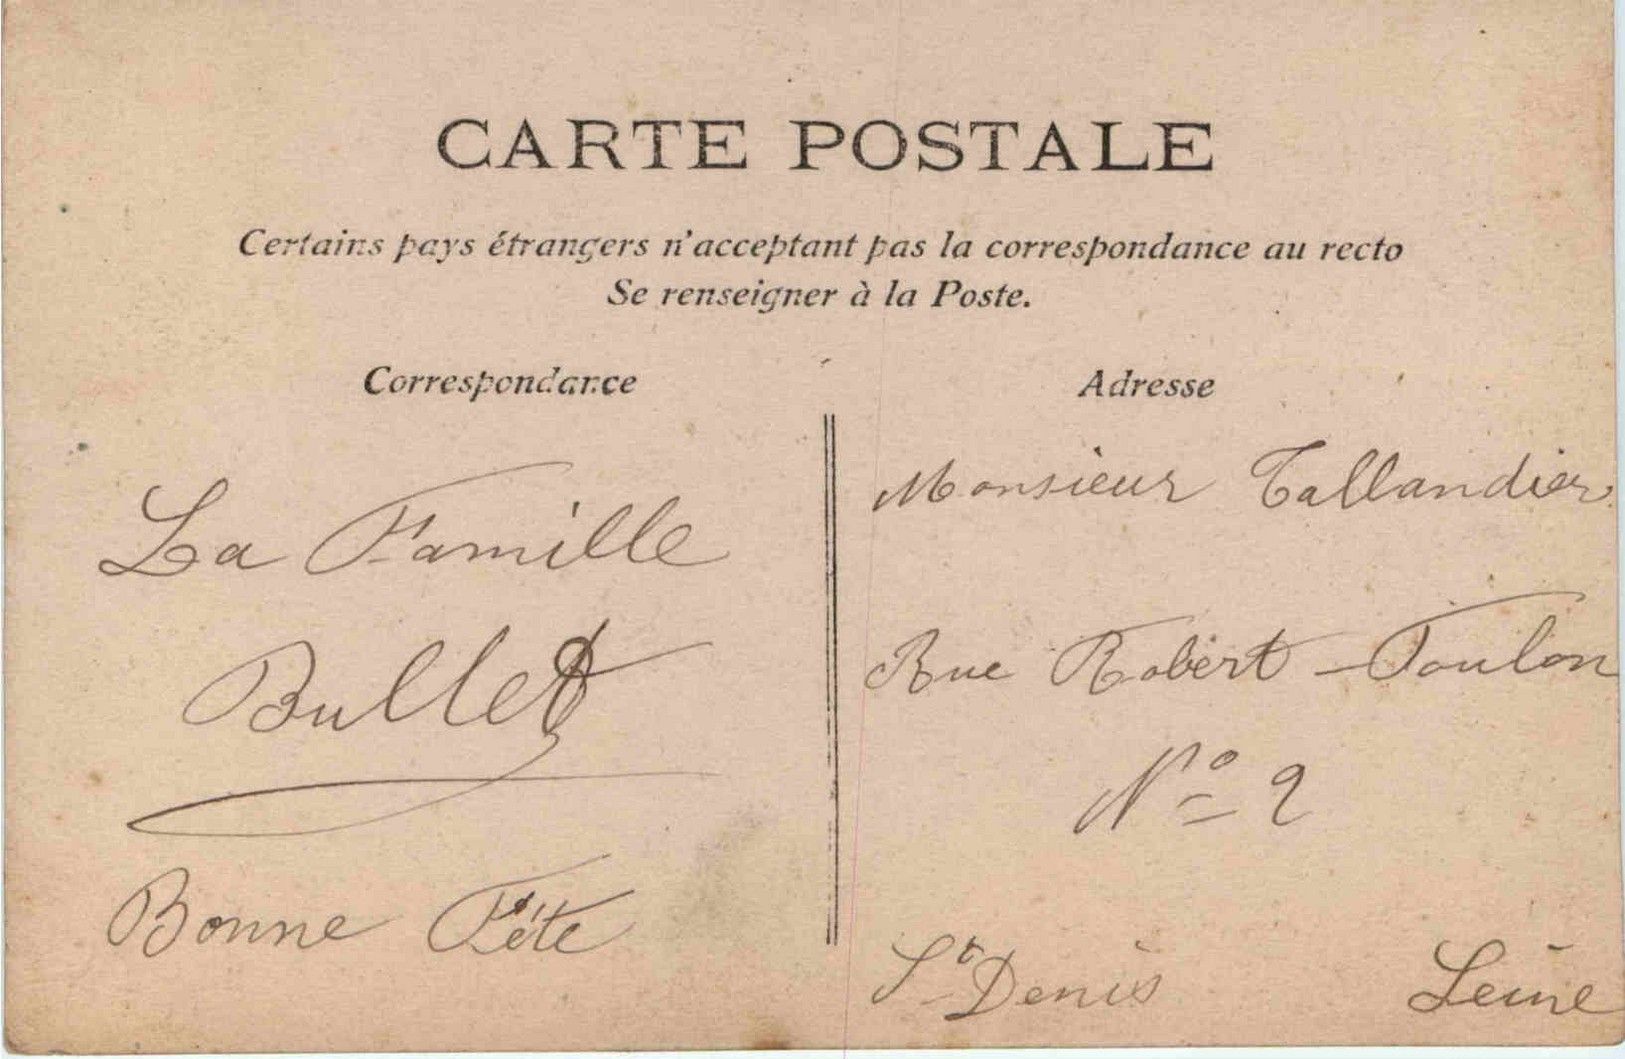 CARTE POSTALE
Certains pays étrangers n'acceptant pas la correspondance au recto
Se renseigner à la Poste.
Correspondance
La Famille
Bullet
Bonne Fête
Adresse
Monsieur Tallandier
Rue Robert-Foulon
Nº 2
St Denis Seine